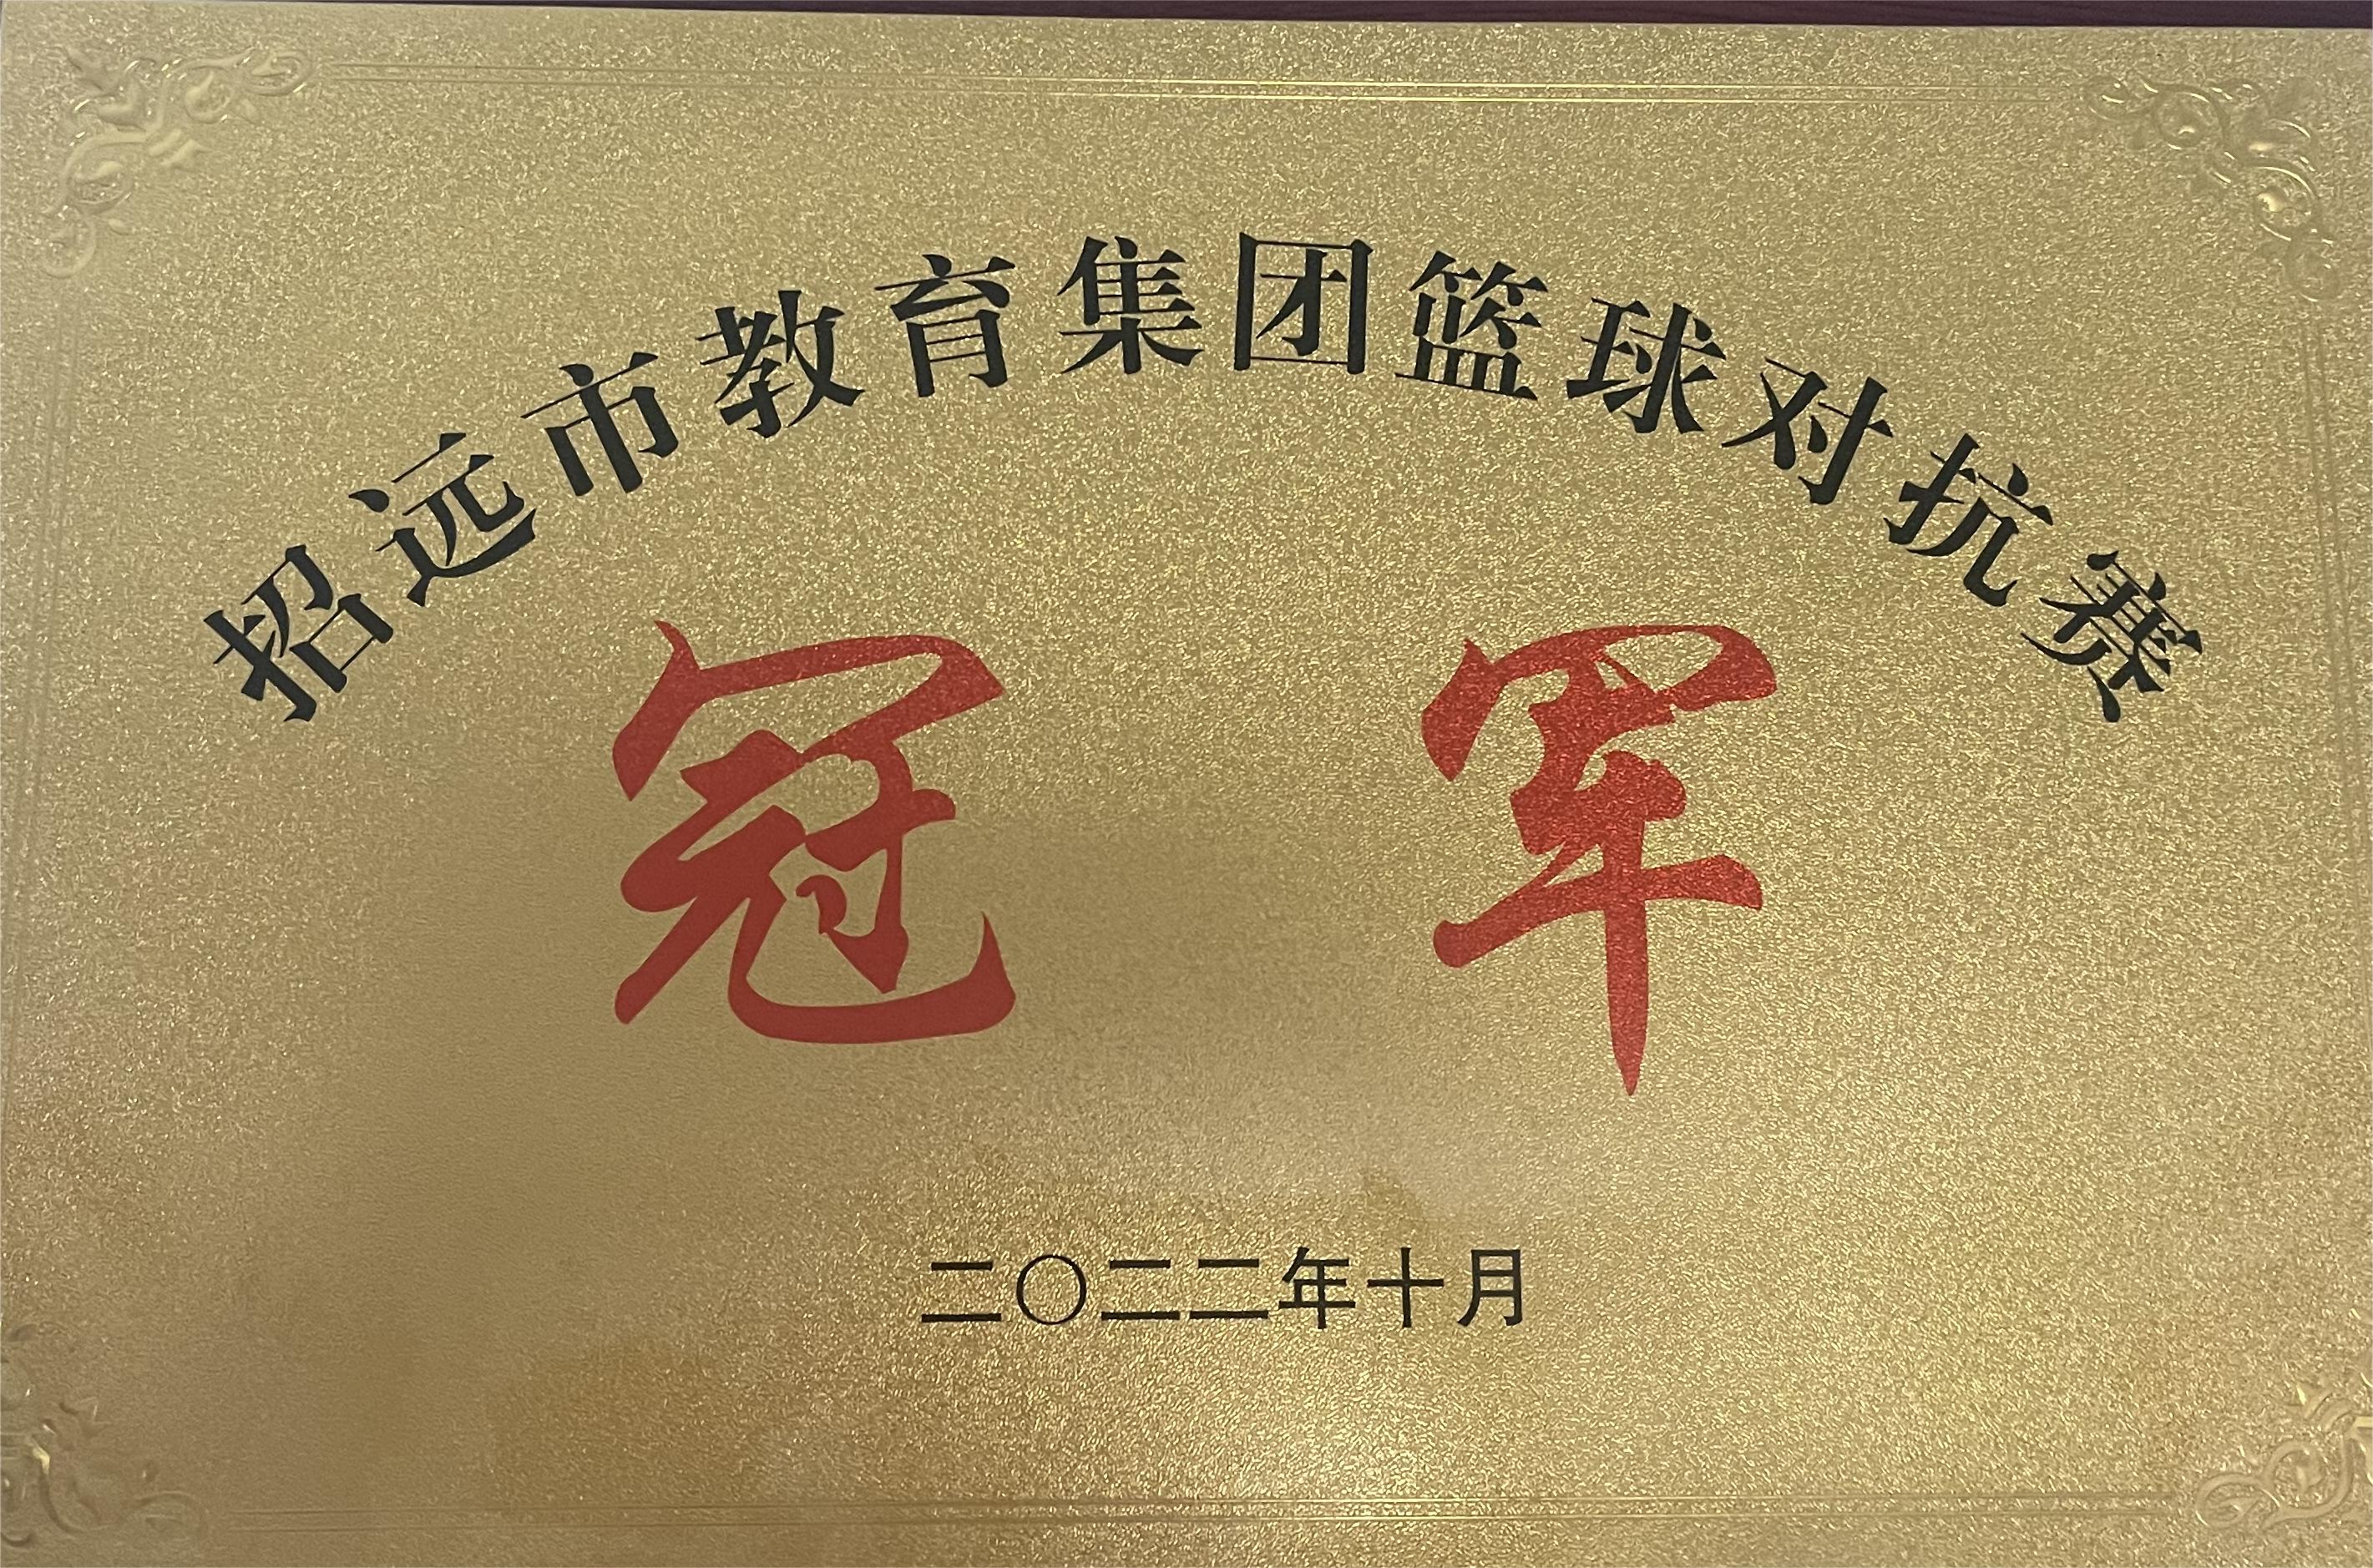 招远市教育集团篮球对抗赛
冠军
二〇二二年十月